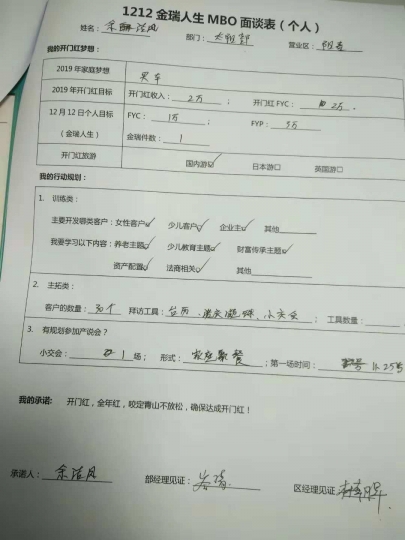 1212 金瑞人生 MBO 面谈表（个人）
姓名： 部门： 营业区：
我的开门红梦想：
2019 年家庭梦想 买车
2019 年开门红目标 开门红收入：2万； 开门红 FYC：2万.
12 月 12 日个人目标（金瑞人生） FYC：1万； FYP：5万
金瑞件数：1
开门红旅游 国内游☑ 日本游□ 英国游□
我的行动规划：
1. 训练类：
主要开发哪类客户：女性客户☑ 少儿客户☑ 企业主☑ 其他
我要学习以下内容：养老主题☑ 少儿教育主题☑ 财富传承主题☑
资产配置☑ 法商相关☑ 其他
2. 主拓类：
客户的数量：30个 拜访工具：台历、 小交会； 工具数量：
3. 有规划参加产说会？
小交会：1场； 形式：聚餐；第一场时间：11.25号
我的承诺： 开门红，全年红，咬定青山不放松，确保达成开门红！
承诺人： 部经理见证： 区经理见证